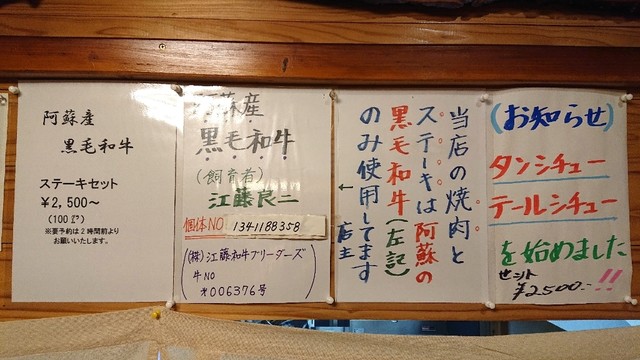 阿蘇産
黒毛和牛
ステーキセット
¥2,500～
(100㌘)
※要予約は2時間前より
お願いいたします。
阿蘇産
黒毛和牛
(飼育者)
江藤良二
個体NO 1341188358
(株)江藤和牛ブリーダーズ
牛NO
*006376号
当店の焼肉と
ステーキは阿蘇の
黒毛和牛(左記)
のみ使用してます
店主
(お知らせ)
タンシチュー
テールシチュー
を始めました!!
セット
¥2500.-